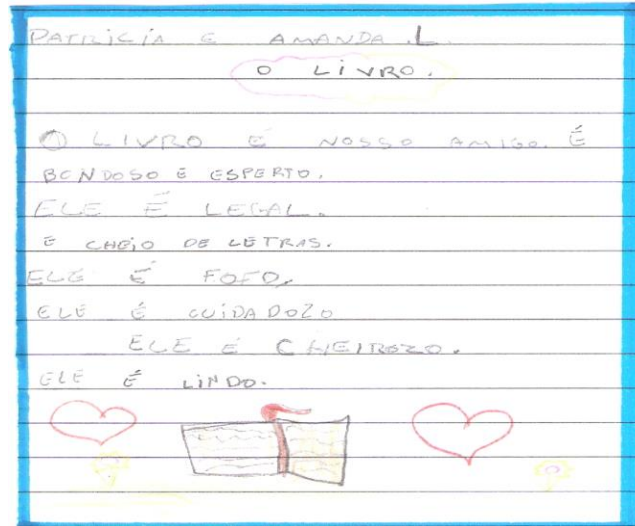 PATRICIA E AMANDA .L.
O LIVRO.
O LIVRO É NOSSO AMIGO. É
BONDOSO E ESPERTO.
ELE É LEGAL.
E CHEIO DE LETRAS.
ELE É FOFO.
ELE É CUIDADOZO
ELE É CHEIROZO.
ELE É LINDO.